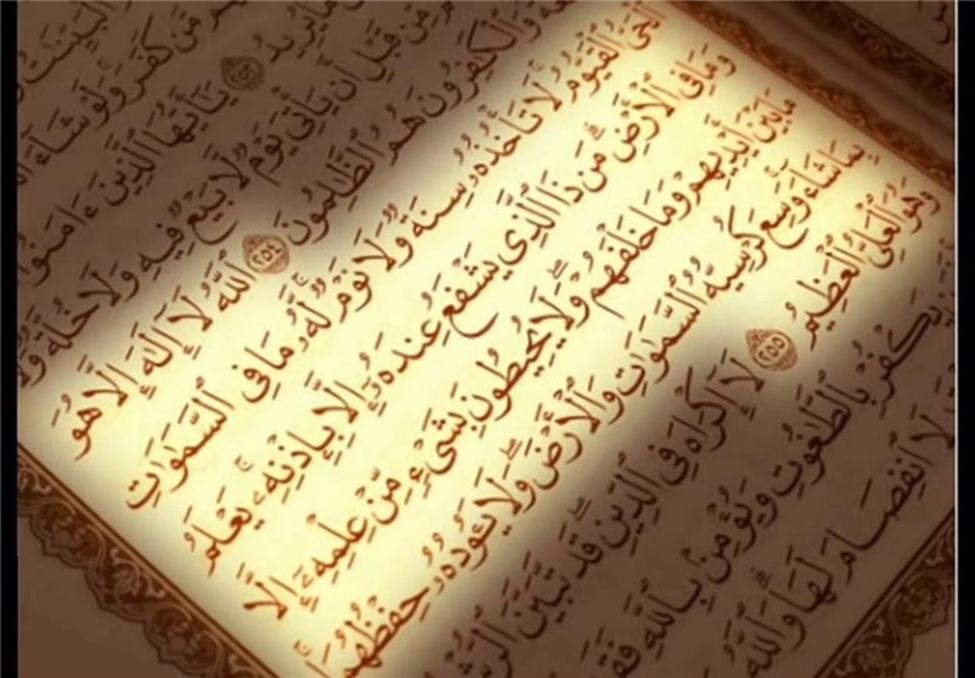 ٱلْبَيِّنَٰتُ
مَّن كَفَرَ وَلَوْ شَآءَ
مَا يُرِيدُ ٢٥٣ يَٰٓأَيُّهَا ٱلَّذِينَ ءَامَنُوٓا۟
مِّن قَبْلِ أَن يَأْتِىَ يَوْمٌ لَّا بَيْعٌ فِيهِ وَلَا خُلَّةٌ
وَٱلْكَٰفِرُونَ هُمُ ٱلظَّٰلِمُونَ ٢٥٤ ٱللَّهُ لَآ إِلَٰهَ إِلَّا هُوَ
ٱلْحَىُّ ٱلْقَيُّومُ ۚ لَا تَأْخُذُهُۥ سِنَةٌ وَلَا نَوْمٌ ۚ لَّهُۥ مَا فِى ٱلسَّمَٰوَٰتِ
وَمَا فِى ٱلْأَرْضِ ۗ مَن ذَا ٱلَّذِى يَشْفَعُ عِندَهُۥٓ إِلَّا بِإِذْنِهِۦ ۚ يَعْلَمُ
مَا بَيْنَ أَيْدِيهِمْ وَمَا خَلْفَهُمْ ۖ وَلَا يُحِيطُونَ بِشَىْءٍ مِّنْ عِلْمِهِۦٓ إِلَّا
بِمَا شَآءَ ۚ وَسِعَ كُرْسِيُّهُ ٱلسَّمَٰوَٰتِ وَٱلْأَرْضَ ۖ وَلَا يَـُٔودُهُۥ حِفْظُهُمَا ۚ
وَهُوَ ٱلْعَلِىُّ ٱلْعَظِيمُ ٢٥٥ لَآ إِكْرَاهَ فِى ٱلدِّينِ ۖ قَد تَّبَيَّنَ
يَكْفُرْ بِٱلطَّٰغُوتِ وَيُؤْمِنۢ بِٱللَّهِ
لَا ٱنفِصَامَ لَهَا ۗ وَٱللَّهُ